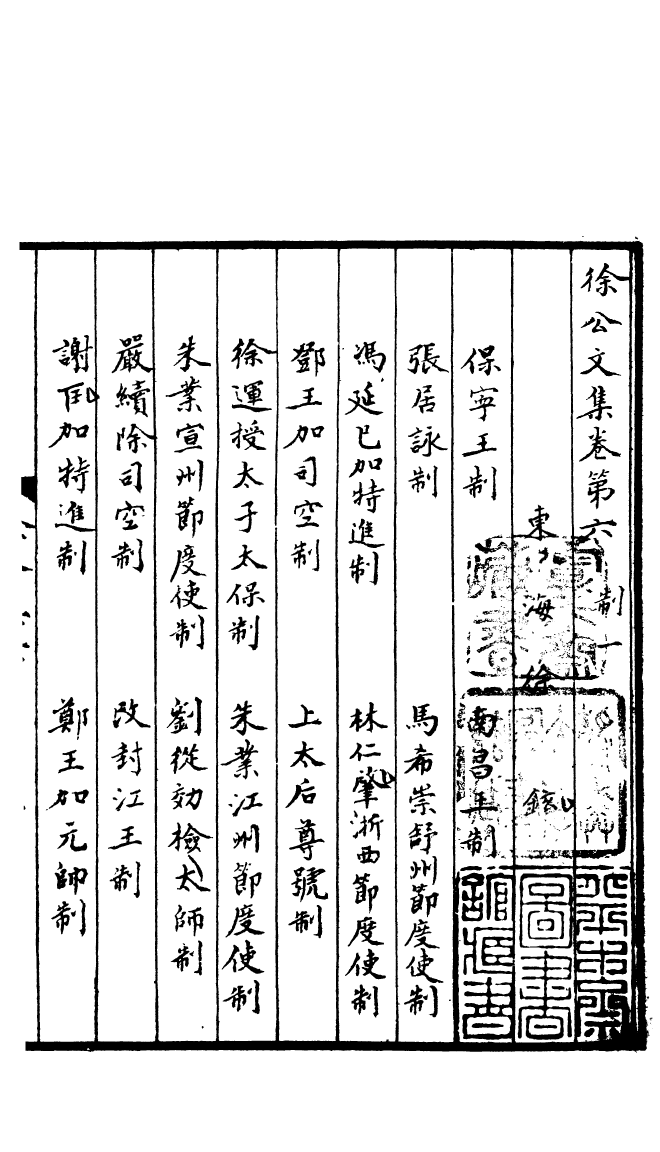 徐公文集卷第六 制一
東海徐鉉
保寧王制 南昌王制
張居詠制 馬希崇舒州節度使制
馮延巳加特進制 林仁肇浙西節度使制
鄧王加司空制 上太后尊號制
徐運授太子太保制 朱業江州節度使制
朱業宣州節度使制 劉從効檢太師制
嚴續除司空制 改封江王制
謝匡加特進制 鄭王加元帥制